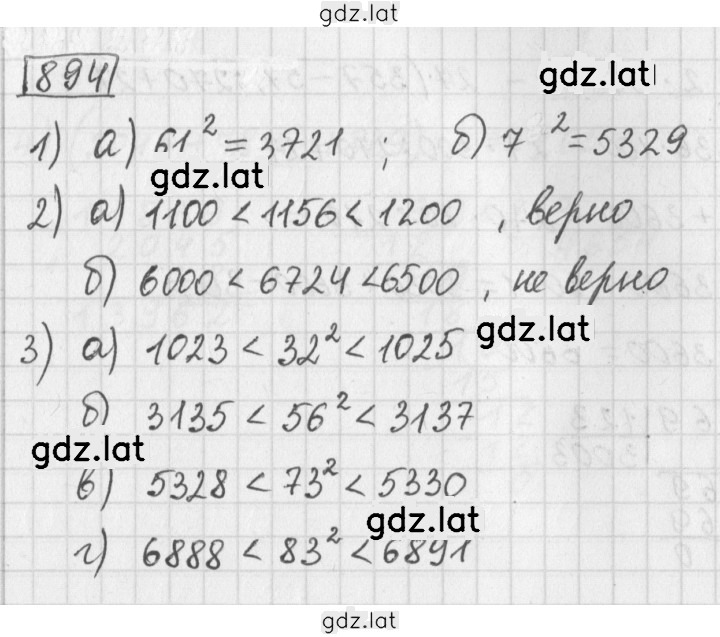 gdz.lat
894
gdz.lat
1) а) 61² = 3721 ; б) 7 ² = 5329
gdz.lat
2) а) 1100 < 1156 < 1200 , верно
б) 6000 < 6724 < 6500 , не верно
gdz.lat
3) а) 1023 < 32² < 1025
б) 3135 < 56² < 3137
gdz.lat
в) 5328 < 73² < 5330
gdz.lat
г) 6888 < 83² < 6891
gdz.lat